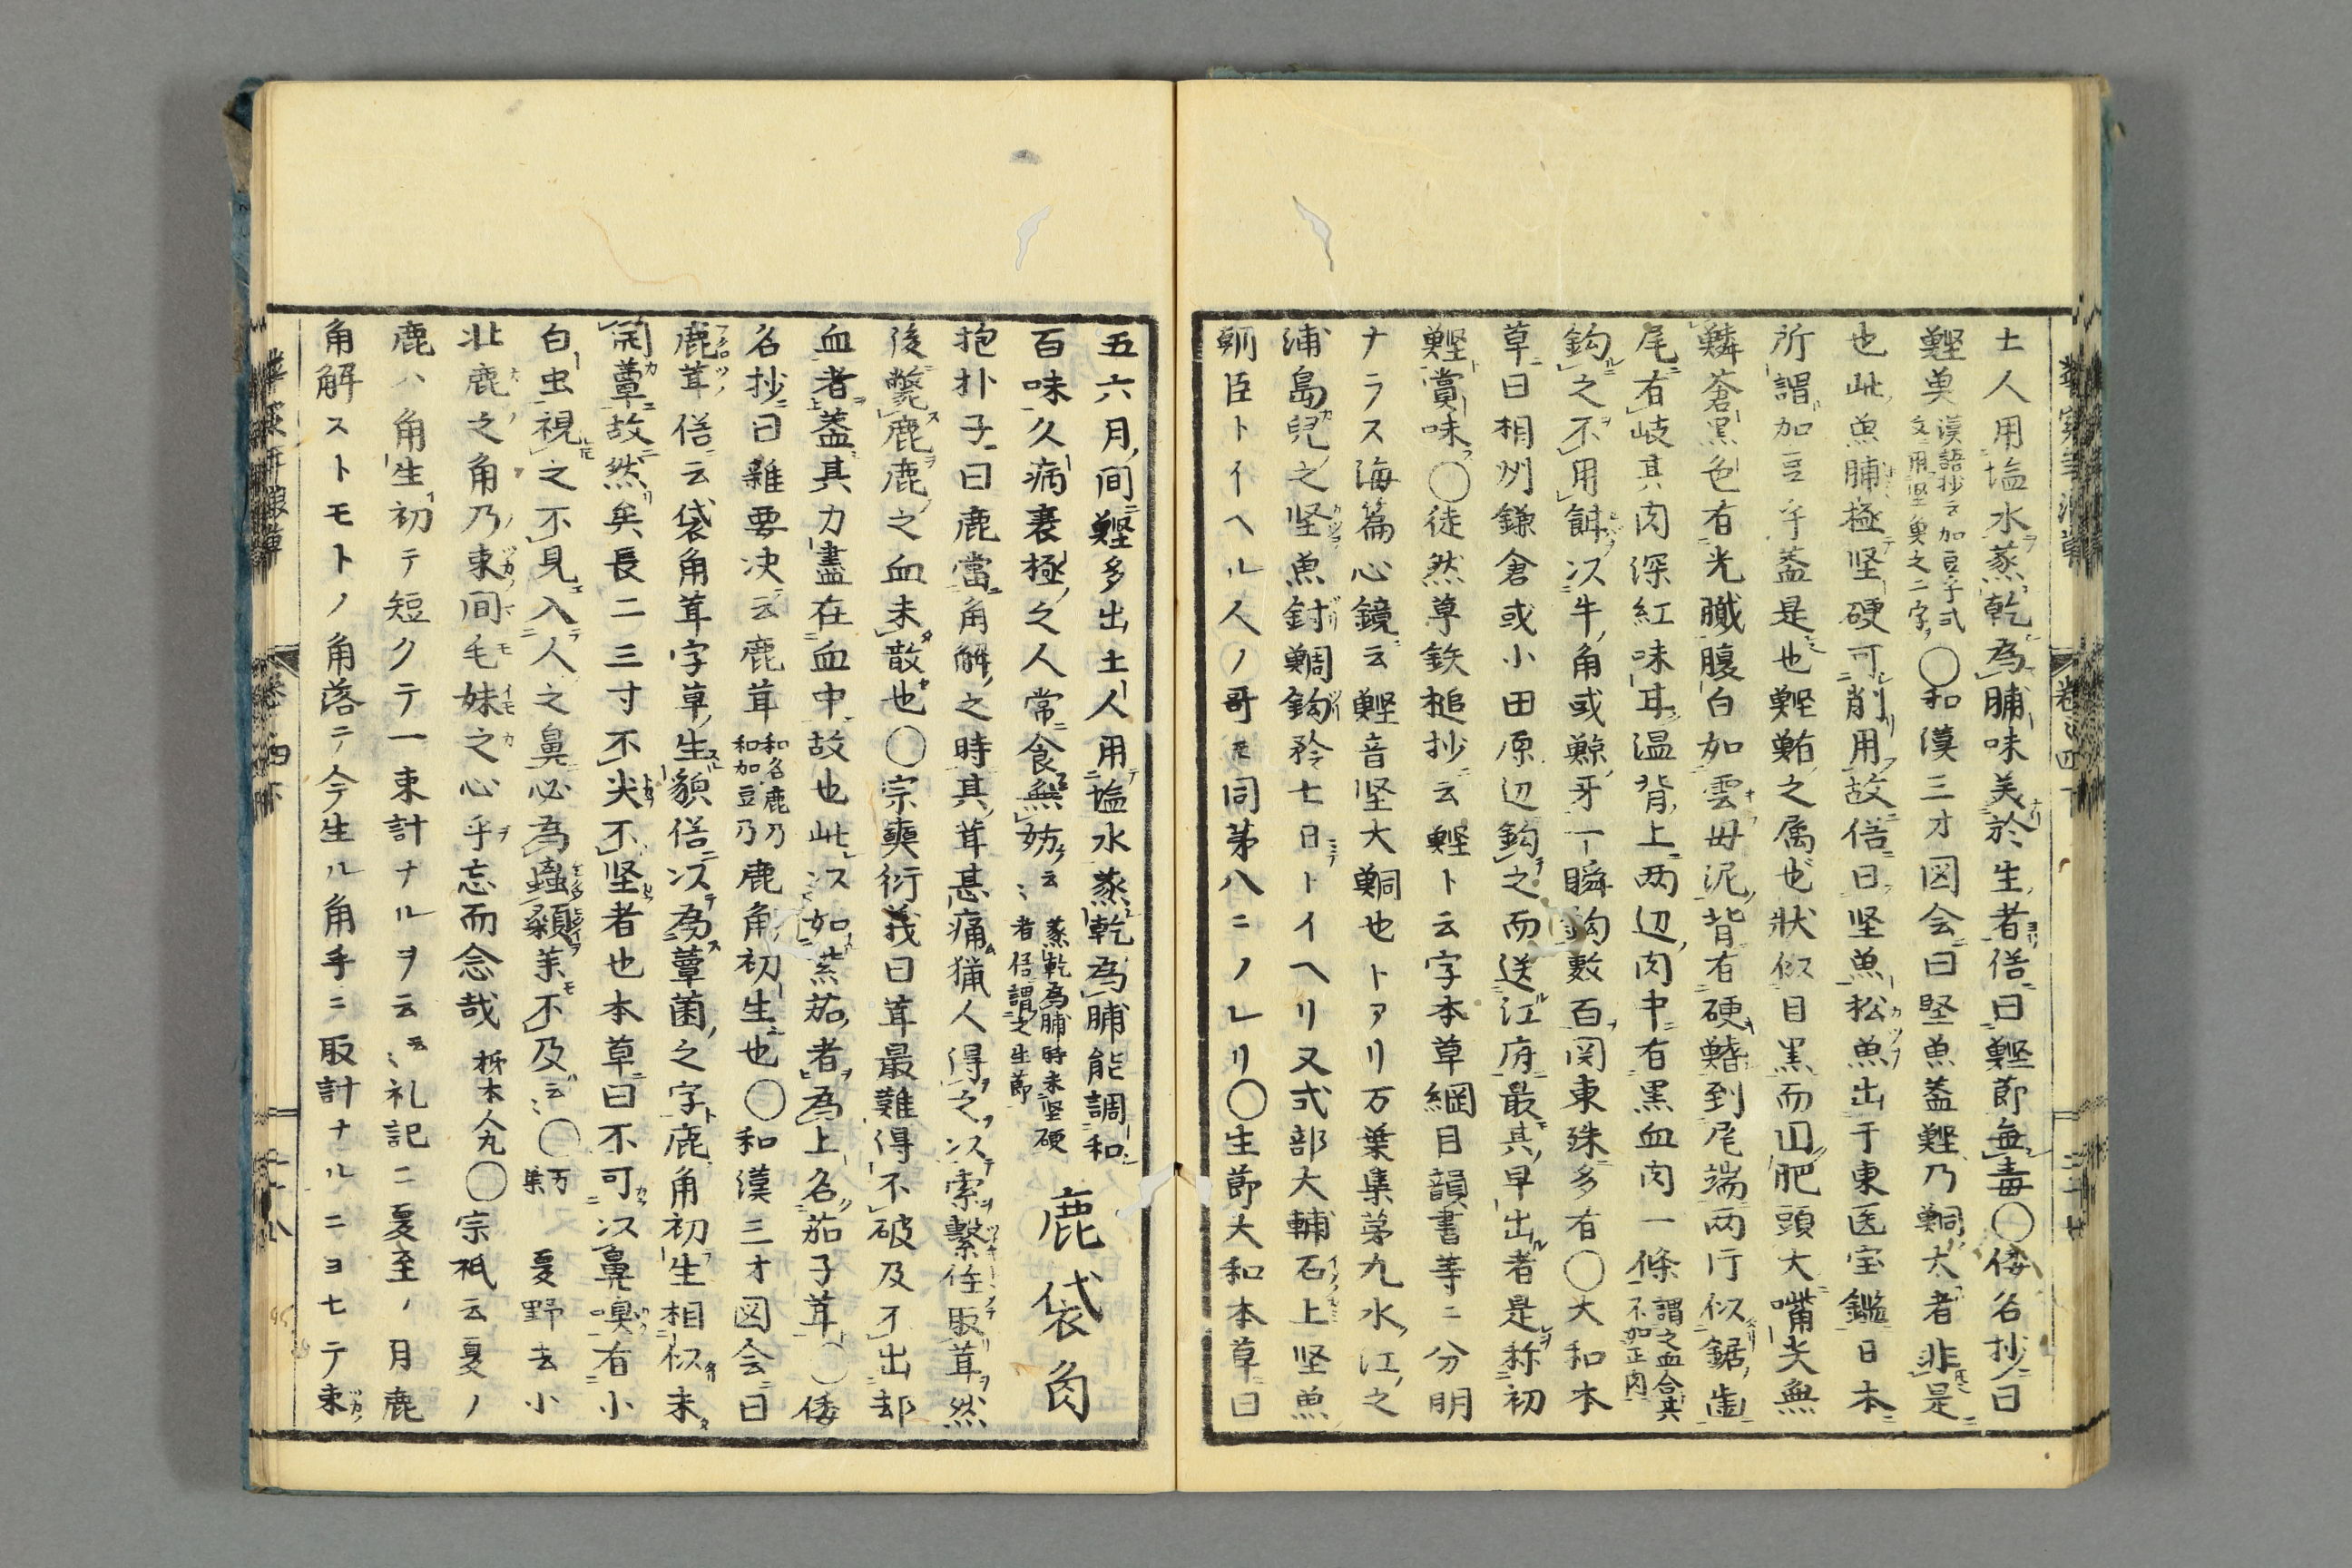 土人用塩水蒸乾為脯味美於生者俗曰鰹節無毒〇倭名抄曰
鰹奧漢語抄云加豆乎式文用堅魚之二字〇和漢三才図会曰堅魚蓋鰹乃鯛大者非是
也此魚脯極堅硬可削用故俗曰堅魚松魚出于東医宝鑑日本
所謂加豆乎蓋是也鰹鮪之属也状似目黒而円肥頭大嘴尖無
鱗蒼黒色有光膩腹白如雲母泥背有硬鰭到尾端両行似鋸歯
尾有岐其肉深紅味耳温背上両辺肉中有黒血肉一條謂之血合共不加正肉
鈎之不用餌以牛角或鯨牙一瞬鈎数百関東殊多有〇大和本
草曰相州鎌倉或小田原辺鈎之而送江府最其早出者是称初
鰹賞味〇徒然草鉄槌抄云鰹ト云字本草綱目韻書等ニ分明
ナラス海篇心鏡云鰹音堅大鮦也トアリ万葉集第九水江之
浦島兒之堅魚釣鯛釣矜七日トイヘリ又式部大輔石上堅魚
朝臣トイヘル人ノ哥モ同第八ニノレリ〇生節大和本草曰
五六月間鰹多出土人用塩水蒸乾為脯能調和
百味久病衰極之人常食無妨云〻蒸乾為脯時未堅硬者俗謂之生節　鹿袋角
抱朴子曰鹿當角解之時其茸甚痛猟人得之以索繋住取茸然
後斃鹿鹿之血未散也〇宗奭衍義曰茸最難得不破及不出却
血者蓋其力盡在血中故也此以如紫茄者為上名茄子茸〇倭
名抄曰雑要决云鹿茸和名鹿乃和加豆乃鹿角初生也〇和漢三才図会曰
鹿茸俗云袋角茸字草生貌俗以為蕈菌之字鹿角初生相似未
開蕈故然矣長二三寸不尖不堅者也本草曰不可以鼻嗅有小
白虫視之不見入人之鼻必為蟲顙薬不及云〻〇万葉　夏野去小
壮鹿之角乃束間毛妹之心乎忘而念哉　柿本人丸〇宗祇云夏ノ
鹿ハ角生初テ短クテ一束計ナルヲ云云〻礼記ニ夏至ノ月鹿
角解ストモトノ角落テ今生ル角手ニ取計ナルニヨセテ束